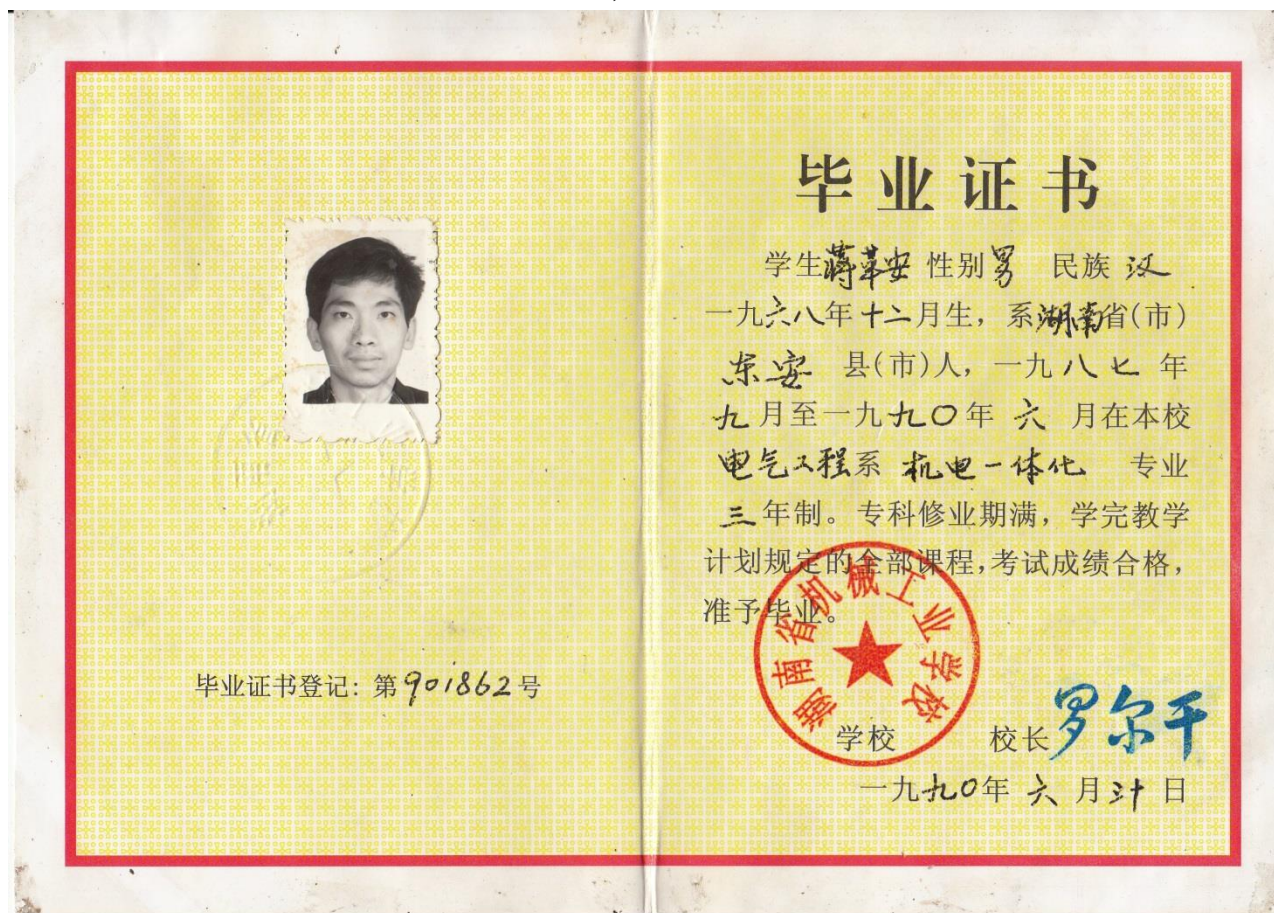 毕业证书登记: 第901862号
毕业证书
学生蒋革安 性别男 民族汉
一九六八年十二月生，系湖南省(市)
东安 县(市)人，一九八七年
九月至一九九〇年六月在本校
电气工程系 机电一体化 专业
三年制。专科修业期满，学完教学
计划规定的全部课程，考试成绩合格，
准予毕业。
湖南省机械工业学校
学校 校长 罗尔干
一九九〇年 六 月 三十 日